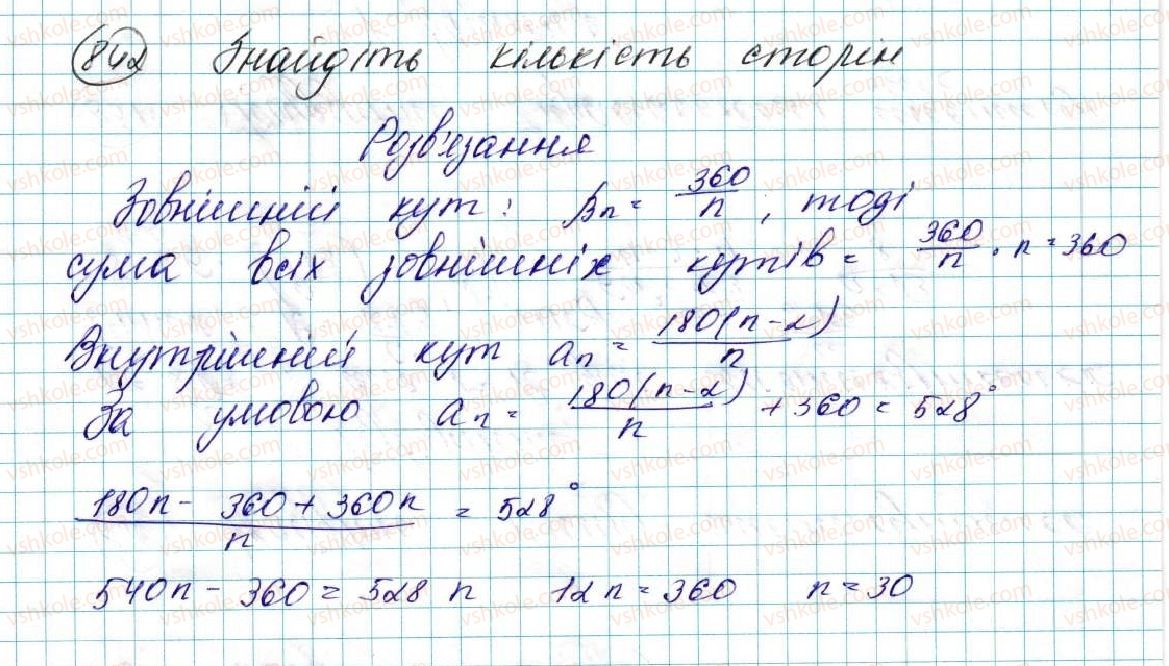 842 Знайдіть кількість сторін
Розв'язання
Зовнішній кут: βn = 360/n, тоді
сума всіх зовнішніх кутів = 360/n · n = 360
Внутрішній кут an = 180(n-2)/n
За умовою an = 180(n-2)/n + 360 = 528°
(180n - 360 + 360n)/n = 528°
540n - 360 = 528 n 12n = 360 n = 30
vshkole.com